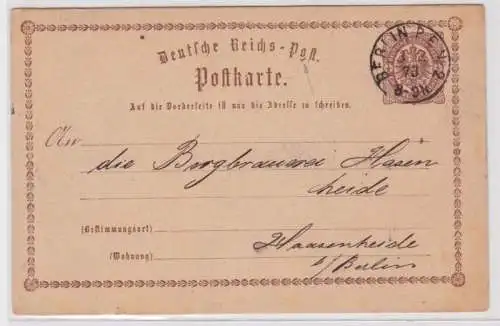 Deutsche Reichs-Post.
Postkarte.
Auf die Vorderseite ist nur die Adresse zu schreiben.
BERLIN P.E. N
73
An die Bergbrauerei Hasen
heide
(Bestimmungsort)
Haasenheide
(Wohnung)
b/Berlin